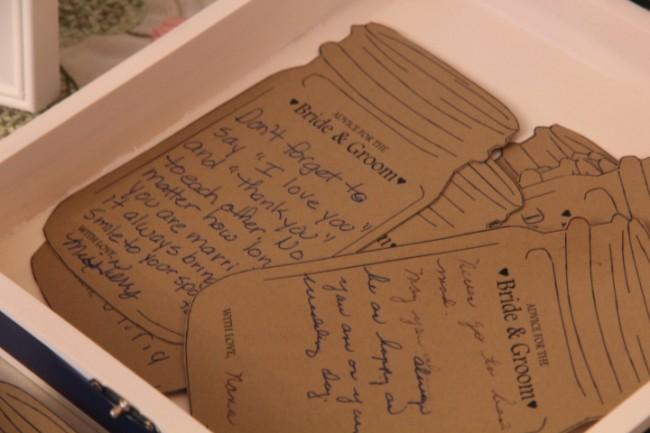 ADVICE FOR THE
♥Bride & Groom♥
Don't forget to
say "I love you"
and "thank you"
to each other no
matter how lon
you are marri
it always bring
smile to your spo
WITH LOVE,
ADVICE FOR THE
♥Bride & Groom♥
Never go to bed
mad.
May you always
be as happy as
you are on your
wedding day.
WITH LOVE, Nana